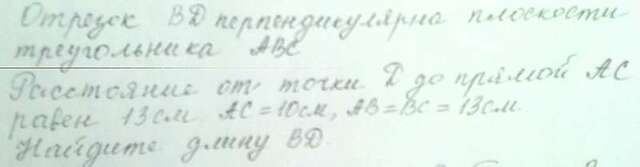 Отрезок BD перпендикулярна плоскости
треугольника ABC
Расстояние от точки D до прямой AC
равен 13см AC=10см, AB=BC=13см
Найдите длину BD.